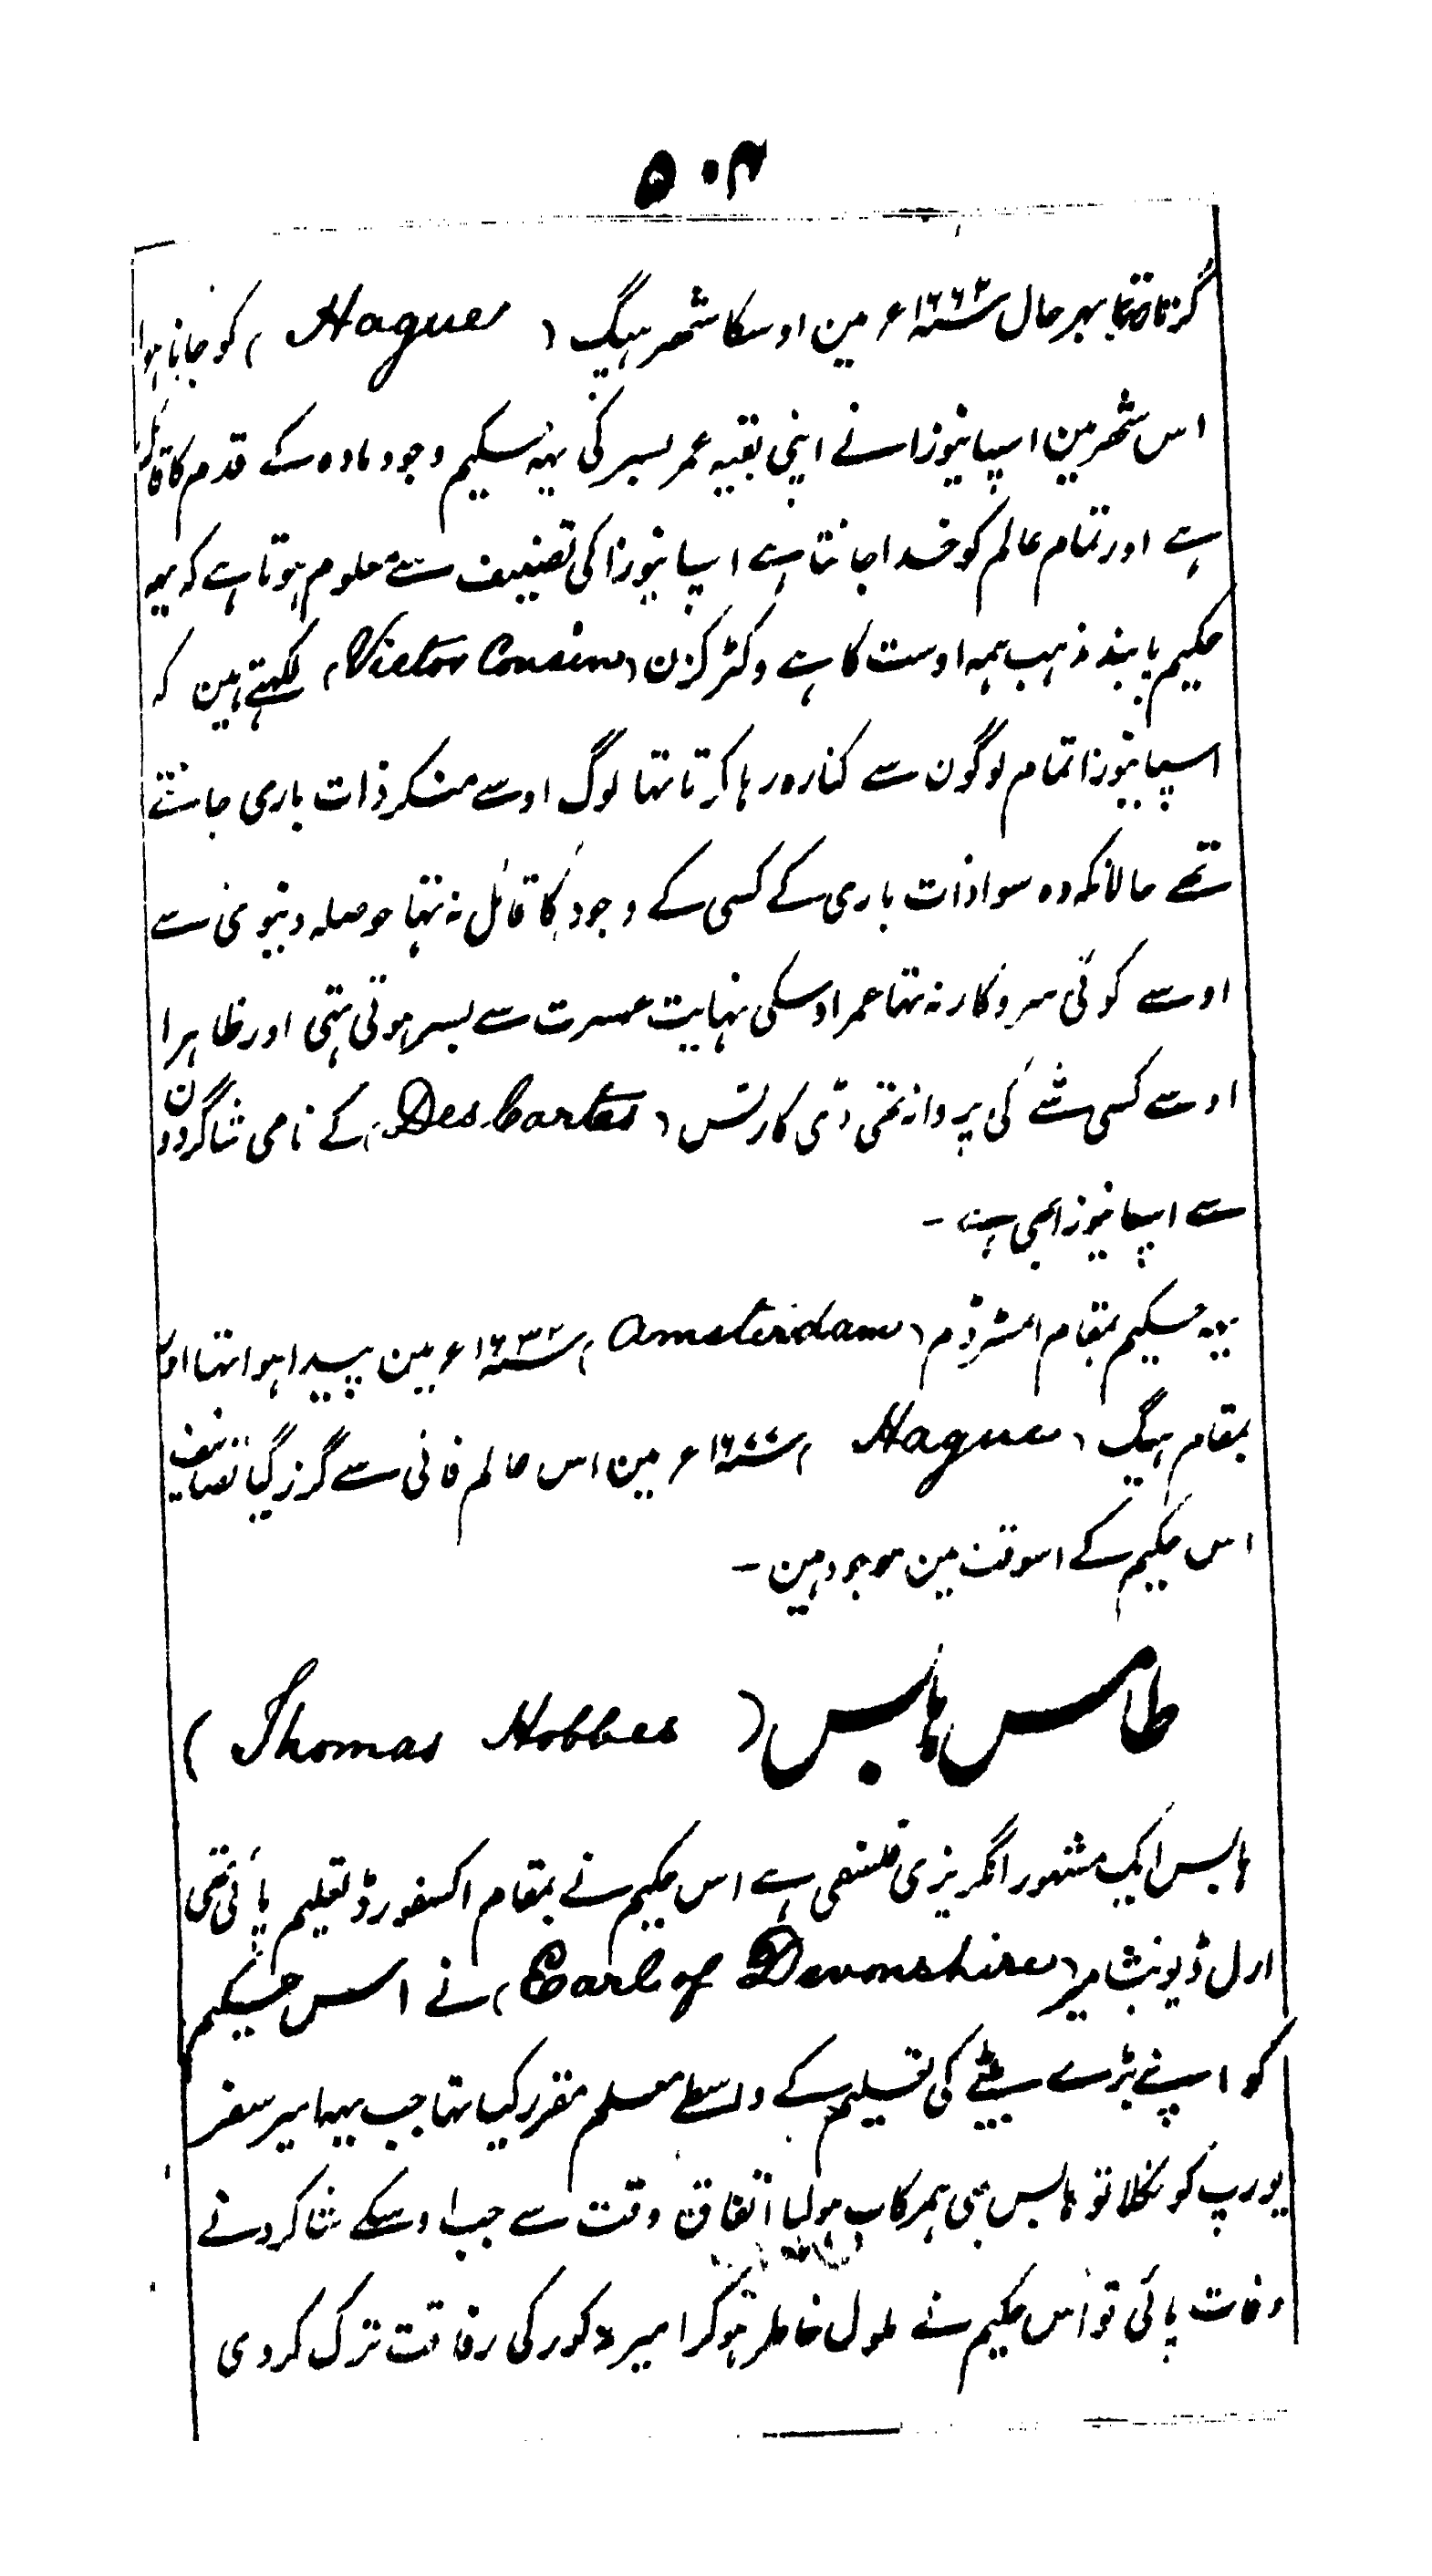 ۵۰۴
کرتا تھا بہر حال ۱۶۶۳ء مین اوسکا شہر ہیگ ( Hague ) کو جانا ہوا
اس شہر مین اسپانیوزا نے اپنی بقیہ عمر بسر کی یہہ حکیم وجود مادہ کے قدم کا قائل
ہے اور تمام عالم کو خدا جانتا ہے اسپانیوزا کی تصنیف سے معلوم ہوتا ہے کہ یہہ
حکیم پابند مذہب ہمہ اوست کا ہے وکٹر کزن ( Victor Cousin ) لکہتے ہین کہ
اسپانیوزا تمام لوگون سے کنارہ رہا کرتا تہا لوگ اوسے منکر ذات باری جانتے
تھے حالانکہ وہ سوا ذات باری کے کسی کے وجود کا قائل نہ تہا حوصلہ دنیوی سے
اوسے کوئی سروکار نہ تہا عمر اوسکی نہایت عسرت سے بسر ہوتی تہی اور ظاہرا
اوسے کسی شے کی پروا نہ تھی ڈی کارٹس ( Des Cartes ) کے نامی شاگردون
سے اسپانیوزا بھی ہے -
یہہ حکیم بمقام امسٹرڈم ( Amsterdam ) ۱۶۳۲ء مین پیدا ہوا تہا اور
بمقام ہیگ ( Hague ) ۱۶۷۷ء مین اس عالم فانی سے گزر گیا تصانیف
اس حکیم کے اسوقت مین موجود ہین -
طامس ہابس ( Thomas Hobbes )
ہابس ایک مشہور انگریزی فلسفی ہے اس حکیم نے بمقام اکسفورڈ تعلیم پائی تھی
ارل ڈیونشایر ( Earl of Devonshire ) نے اس حکیم
کو اپنے بڑے بیٹے کی تعلیم کے واسطے معلم مقرر کیا تہا جب یہہ امیر سفر
یورپ کو نکلا تو ہابس بھی ہمرکاب ہولیا اتفاق وقت سے جب اوسکے شاگرد نے
وفات پائی تو اس حکیم نے ملول خاطر ہوکر امیر مذکور کی رفاقت ترک کردی